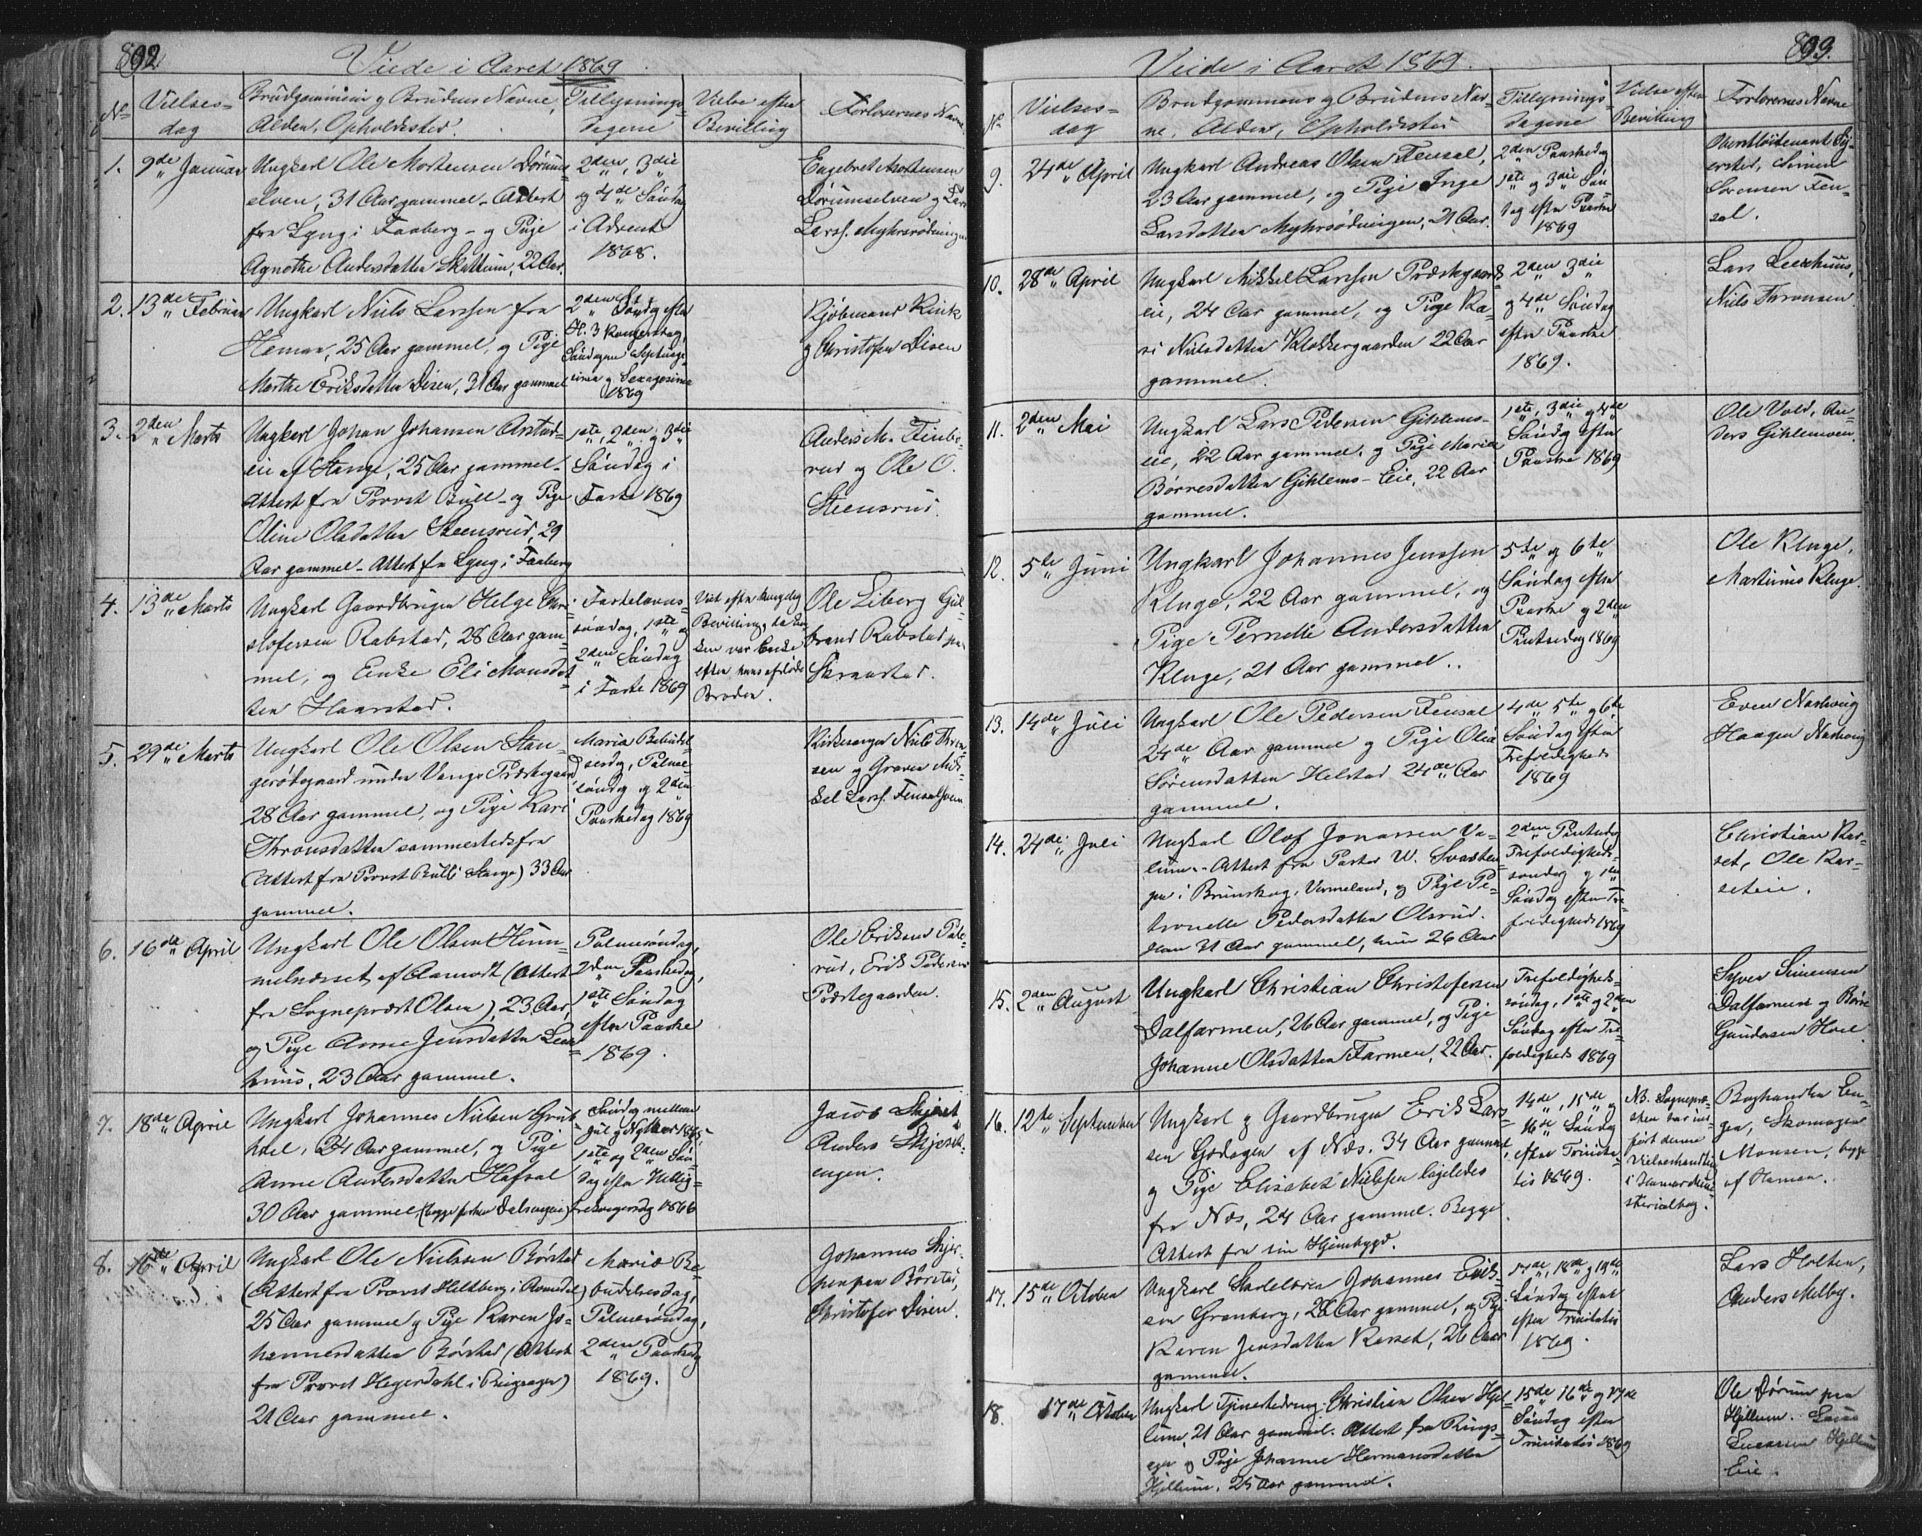 892
Viede i Aaret 1869
No
Vielses-
dag
Brudgommens og Brudens Navne,
Alder, Opholdssted.
Tillysnings-
dagene
Vielse efter
Bevilling
Forlovernes Navne
1.
9de Januar
Ungkarl Ole Mortensen Dørums-
elven, 31 Aar gammel - Attest
fra Lyng i Faaberg - og Pige
Agnethe Andersdatter Skattum, 22 Aar.
2den, 3die
og 4de Søndag
i Advent
1868.
Engebret Mortensen
Dørumselven og Lars
Larss. Myhrsødningen
2.
13de Februar
Ungkarl Niels Larssen fra
Hamar, 25 Aar gammel, og Pige
Marthe Eriksdatter Disen, 31 Aar gammel
2den Sønd. efter
H. 3 Kongersdag,
Søndagene Septuage-
sima og Sexagesima
1869
Kjøbmand
og Christofer Disen
3.
2den Marts
Ungkarl Johan Johansen Arstad-
eie af Stange, 25 Aar gammel -
Attest fra Provst Bull - og Pige
Oline Olsdatter Steensrud, 29
Aar gammel - Attest fra Lyng i Faaberg
1ste, 2den og 3die
Søndag i
Faste 1869
Anders M. Finbe-
rud og Ole O.
Steensrud.
4.
13de Marts
Ungkarl Gaardbruger Helge Chri-
stofersen Rabstad, 28 Aar gam-
mel, og Enke Eli Monsdat-
ter Haarstad.
Fastelavns-
søndag, 1ste og
2den Søndag
i Faste 1869
Viet efter kongelig
Bevilling, da Enk-
en var Enke
efter hans afdøde
Broder.
Ole Liberg Gul-
brand Rabstad paa
Skraastad.
5.
29de Marts
Ungkarl Ole Olsen Stan-
gerødegaard under Vangs Præstegaard
28 Aar gammel, og Pige Kari
Thronsdatter sammesteds fra
(Attest fra Provst Bull i Stange) 33 Aar
gammel.
Maria Bebudel-
sesdag, Palme-
søndag og 2den
Paaskedag 1869
Kirkesanger Niels Thron-
sen og Graver Mik-
kel Larss. Finsalhoen
6.
16de April
Ungkarl Ole Olsen Hem-
melnæsset af Aamodt (Attest
fra Sognepræst Olsen), 23 Aar,
og Pige Anne Jensdatter Leer-
huus, 23 Aar gammel.
Palmesøndag,
2den Paaskedag,
1ste Søndag
efter Paaske
1869.
Ole Eriksen Pute-
rud, Erik Pedersen
Præstegaarden.
7.
18de April
Ungkarl Johannes Nielsen Grut-
hoel, 24 Aar gammel, og Pige
Anne Andersdatter Hafsal
30 Aar gammel (begge forhen Dalseiens)
Søndag mellem
Jul og Nytaar 1865,
1ste og 2den Søn-
dag efter Hellig-
trekongersdag 1866
Jacob Skjeset
Anders Skjeset-
engen.
8.
16de April
Ungkarl Ole Nielsen Børstad
(Attest fra Provst Heltberg i Romedal)
25 Aar gammel og Pige Karen Jo-
hannesdatter Børstad (Attest
fra Provst Hegerdahl i Ringsager)
21 Aar gammel.
Mariæ Be-
budelsesdag,
Palmesøndag,
2den Paaskedag
1869.
Johannes Skjer-
penpen Børstad,
Christofer Disen.
893.
Viede i Aaret 1869.
No
Vielses-
dag
Brudgommens og Brudens Nav-
ne, Alder, Opholdssted
Tillysnings-
dagene
Vielse efter
Bevilling
Forlovernes Navne
9.
24de April
Ungkarl Andreas Olsen Finsal,
23 Aar gammel, og Pige Inge
Larsdatter Myhrsødningen, 21 Aar.
2den Paaskedag
1ste og 3die Søn-
dag efter Paaske
1869
Oberstløitenant Sy-
ersted, Simen
Sørensen Fin-
sal.
10.
28de April
Ungkarl Mikkel Larssen Præstegaards-
eie, 24 Aar gammel, og Pige Ka-
ri Nielsdatter Klokkergaarden 22 Aar
gammel.
2den 3die
og 4de Søndag
efter Paaske
1869.
Lars Leerhuus,
Niels Thronsen.
11.
2den Mai
Ungkarl Lars Pedersen Gihlems-
eie, 22 Aar gammel, og Pige Maria
Børresdatter Gihlems-Eie, 22 Aar
gammel.
1ste, 3die og 4de
Søndag efter
Paaske 1869
Ole Vold, An-
ders Gihlemoen
12.
5te Juni
Ungkarl Johannes Jenssen
Kluge, 22 Aar gammel, og
Pige Pernelle Andersdatter
Kluge, 21 Aar gammel.
5te og 6te
Søndag efter
Paaske og 2den
Pintsedag 1869
Ole Kluge,
Martinus Kluge.
13.
14de Juli
Ungkarl Ole Pedersen Finsal
24de Aar gammel og Pige Olea
Sørensdatter Helstad 24de Aar
gammel.
4de 5te og 6te
Søndag efter
Trefoldigheds
1869
Even Nashoug
Haagen Nashoug
14.
24de Juli
Ungkarl Olof Jonassen Va-
lium - Attest fra Pastor W. Svaten-
gen i Brunskog, Vermeland, og Pige Pe-
tronelle Pedersdatter Olsrud.
Han 31 Aar gammel, hun 26 Aar
2den Pintsedag
Trefoldigheds-
søndag og 1ste
Søndag efter Tre-
foldigheds 1869
Christian Kar-
set, Ole Kar-
seteie.
15.
2den August
Ungkarl Christian Christofersen
Dalfarmen, 26 Aar gammel, og Pige
Johanne Olsdatter Farmen, 22 Aar.
Trefoldigheds-
søndag, 1ste og 2den
Søndag efter Tre-
foldigheds 1869
Syver Simensen
Dalfarmen og Børre
Gundersen Hoel
16.
12te September
Ungkarl og Gaardbruger Erik Lars-
sen Gjedagen af Næs, 34 Aar gammel
og Pige Elisabet Nielsen ligeledes
fra Næs, 24 Aar gammel. Begge
Attest fra sin Hjembygd.
14de, 15de og
16de Søndag
efter Trinita-
tis 1869.
NB. Sognepræ-
sten har ind-
ført denne
Vielseshandling
i Hamar Mini-
sterialbog.
Boghandler En-
ger, Skomager
Monsen, begge
af Hamar.
17.
15de October
Ungkarl Skolelærer Johannes Erik-
sen Granberg, 28 Aar gammel, og Pige
Karen Jensdatter Karset, 26 Aar
gammel.
17de, 18de og 19de
Søndag efter
efter Trinitatis
1869.
Lars Holten,
Anders Melby.
18.
17de October
Ungkarl Tjenestedreng Christian Olsen Hjel-
lum, 21 Aar gammel. Attest fra Rings-
ager og Pige Johanne Hermansdatter
Hjellum, 25 Aar gammel.
15de 16de og 17de
Søndag efter
Trinitatis 1869
Ole Dørum paa
Hjellum.
Hjellum
Eie.